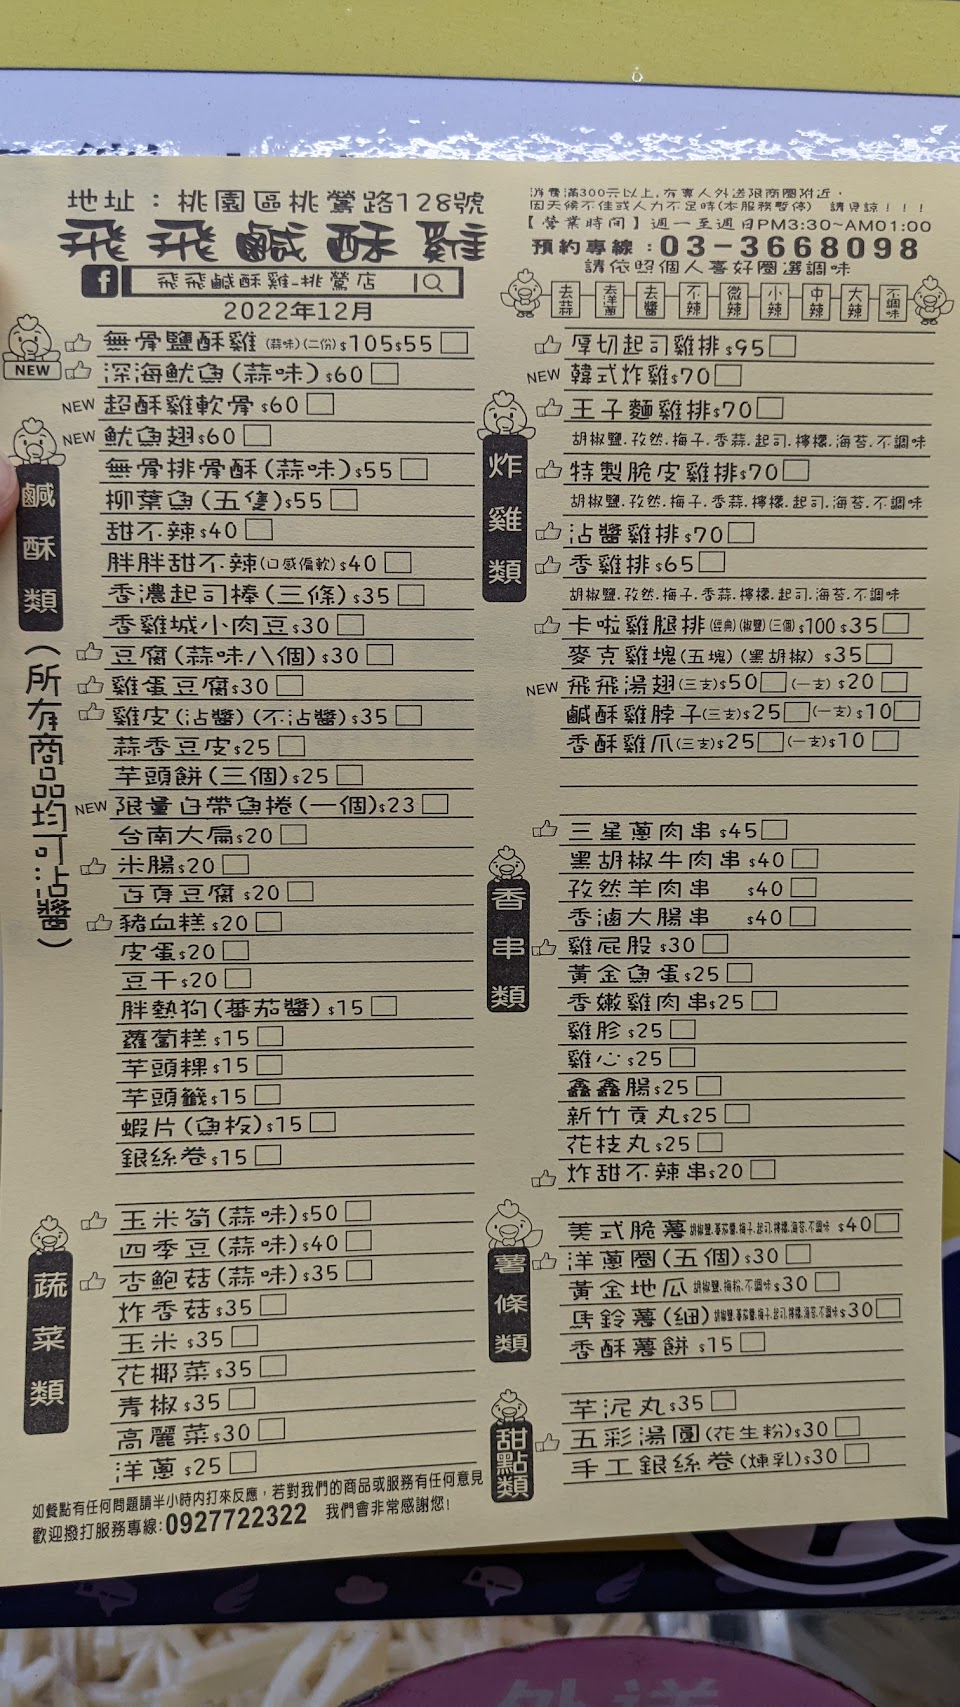 地址：桃園區桃鶯路128號
飛飛鹹酥雞
飛飛鹹酥雞-桃鶯店
2022年12月
消費滿300元以上,有專人外送限商圈附近，
因天候不佳或人力不足時(本服務暫停) 請見諒！！！
【營業時間】週一至週日PM3:30~AM01:00
預約專線：03-3668098
請依照個人喜好圈選調味
去蒜 去洋蔥 去醬 不辣 微辣 小辣 中辣 大辣 不調味
鹹酥類
(所有商品均可沾醬)
NEW 無骨鹽酥雞(蒜味)(二份)$105$55
深海魷魚(蒜味)$60
NEW 超酥雞軟骨$60
NEW 魷魚翅$60
無骨排骨酥(蒜味)$55
柳葉魚(五隻)$55
甜不辣$40
胖胖甜不辣(口感偏軟)$40
香濃起司棒(三條)$35
香雞城小肉豆$30
豆腐(蒜味八個)$30
雞蛋豆腐$30
雞皮(沾醬)(不沾醬)$35
蒜香豆皮$25
芋頭餅(三個)$25
NEW 限量白帶魚捲(一個)$23
台南大扁$20
米腸$20
百頁豆腐$20
豬血糕$20
皮蛋$20
豆干$20
胖熱狗(蕃茄醬)$15
蘿蔔糕$15
芋頭粿$15
芋頭籤$15
蝦片(魚板)$15
銀絲卷$15
蔬菜類
玉米筍(蒜味)$50
四季豆(蒜味)$40
杏鮑菇(蒜味)$35
炸香菇$35
玉米$35
花椰菜$35
青椒$35
高麗菜$30
洋蔥$25
炸雞類
厚切起司雞排$95
NEW 韓式炸雞$70
王子麵雞排$70
胡椒鹽.孜然.梅子.香蒜.起司.檸檬.海苔.不調味
特製脆皮雞排$70
胡椒鹽.孜然.梅子.香蒜.檸檬.起司.海苔.不調味
沾醬雞排$70
香雞排$65
胡椒鹽.孜然.梅子.香蒜.檸檬.起司.海苔.不調味
卡啦雞腿排(經典)(椒鹽)(三個)$100$35
麥克雞塊(五塊)(黑胡椒)$35
NEW 飛飛湯翅(三支)$50 (一支)$20
鹹酥雞脖子(三支)$25 (一支)$10
香酥雞爪(三支)$25 (一支)$10
香串類
三星蔥肉串$45
黑胡椒牛肉串$40
孜然羊肉串 $40
香滷大腸串 $40
雞屁股$30
黃金魚蛋$25
香嫩雞肉串$25
雞胗$25
雞心$25
鑫鑫腸$25
新竹貢丸$25
花枝丸$25
炸甜不辣串$20
薯條類
美式脆薯 胡椒鹽.蕃茄醬.梅子.起司.檸檬.海苔.不調味 $40
洋蔥圈(五個)$30
黃金地瓜 胡椒鹽.梅粉.不調味$30
馬鈴薯(細)胡椒鹽.蕃茄醬.梅子.起司.檸檬.海苔.不調味$30
香酥薯餅 $15
甜點類
芋泥丸$35
五彩湯圓(花生粉)$30
手工銀絲卷(煉乳)$30
如餐點有任何問題請半小時內打來反應，若對我們的商品或服務有任何意見
歡迎撥打服務專線:0927722322 我們會非常感謝您!
外送